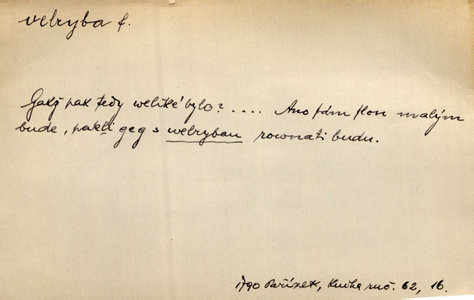 velryba f.
Gaký pak tedy weliké bylo? .... Ano sám slon malým
bude, paklí geg s welryban rownati budu.
1790 Pařízek, Kniha ruč. 62, 16.